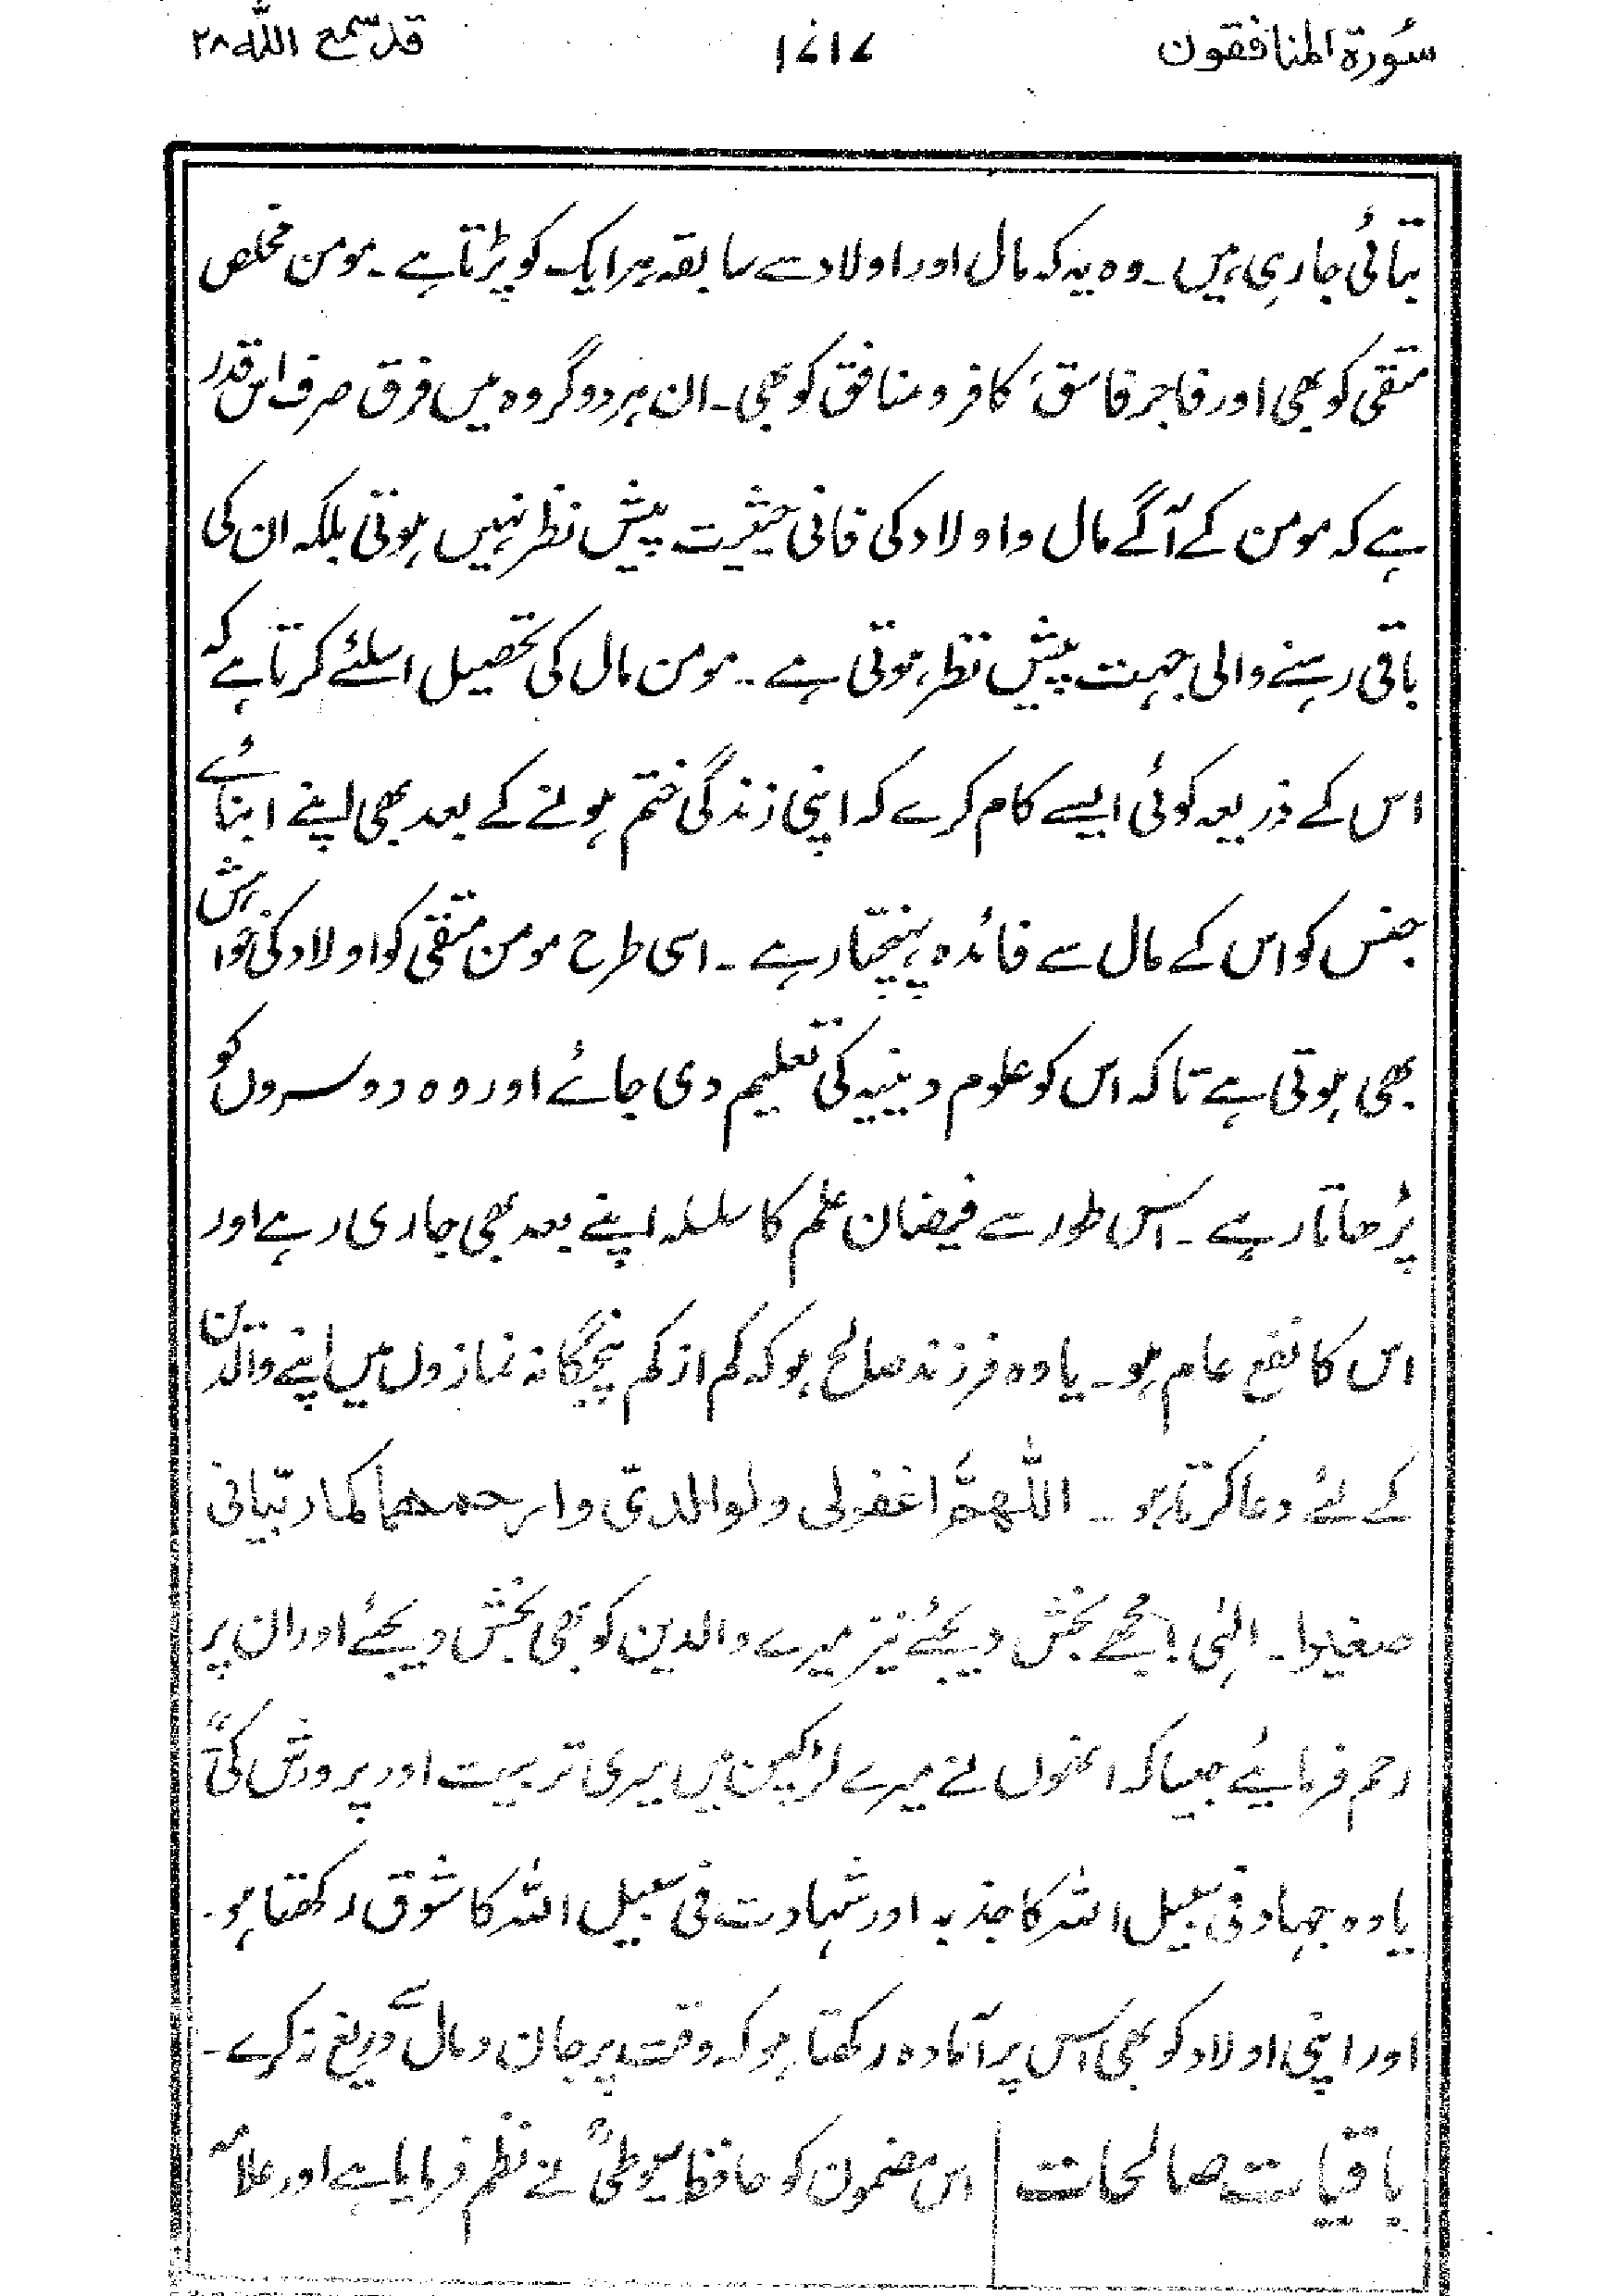 سُورة المنافقون ۱۷۱۷ قد سمع الله ۲۸
بتائی جارہی ہیں۔ وہ یہ کہ مال اور اولاد سے سابقہ ہر ایک کو پڑتا ہے۔ مومن مخلص
متقی کو بھی اور فاجر فاسق، کافر و منافق کو بھی۔ ان ہر دو گروہ میں فرق صرف اس قدر
ہے کہ مومن کے آگے مال و اولاد کی فانی حیثیت پیش نظر نہیں ہوتی بلکہ ان کی
باقی رہنے والی جہت پیش نظر ہوتی ہے۔ مومن مال کی تحصیل اسلئے کرتا ہے کہ
اس کے ذریعہ کوئی ایسے کام کرے کہ اپنی زندگی ختم ہونے کے بعد بھی اپنے ابنائے
جنس کو اس کے مال سے فائدہ پہنچتا رہے۔ اسی طرح مومن متقی کو اولاد کی خواہش
بھی ہوتی ہے تاکہ اس کو علوم دینیہ کی تعلیم دی جائے اور وہ دوسروں کو
پڑھاتا رہے۔ اس طور سے فیضان علم کا سلسلہ اپنے بعد بھی جاری رہے اور
اس کا نفع عام ہو۔ یا وہ فرزند صالح ہو کہ کم از کم پنجگانہ نمازوں میں اپنے والدین
کے لئے دعا کرتا ہو۔ اللّٰهمَّ اغفرلی ولوالدیّ وارحمهما کما ربّیانی
صغیرا۔ الٰہی! مجھے بخش دیجئے نیز میرے والدین کو بھی بخش دیجئے اور ان پر
رحم فرمایئے جیسا کہ انھوں نے میرے لڑکپن میں میری تربیت اور پرورش کی"
یا وہ جہاد فی سبیل اللہ کا جذبہ اور شہادت فی سبیل اللہ کا شوق رکھتا ہو۔
اور اپنی اولاد کو بھی اس پر آمادہ رکھتا ہو کہ وقت پر جان و مال سے دریغ نہ کرے۔
باقیات صالحات | اس مضمون کو حافظ سیوطیؒ نے نظم فرمایا ہے اور علامہ